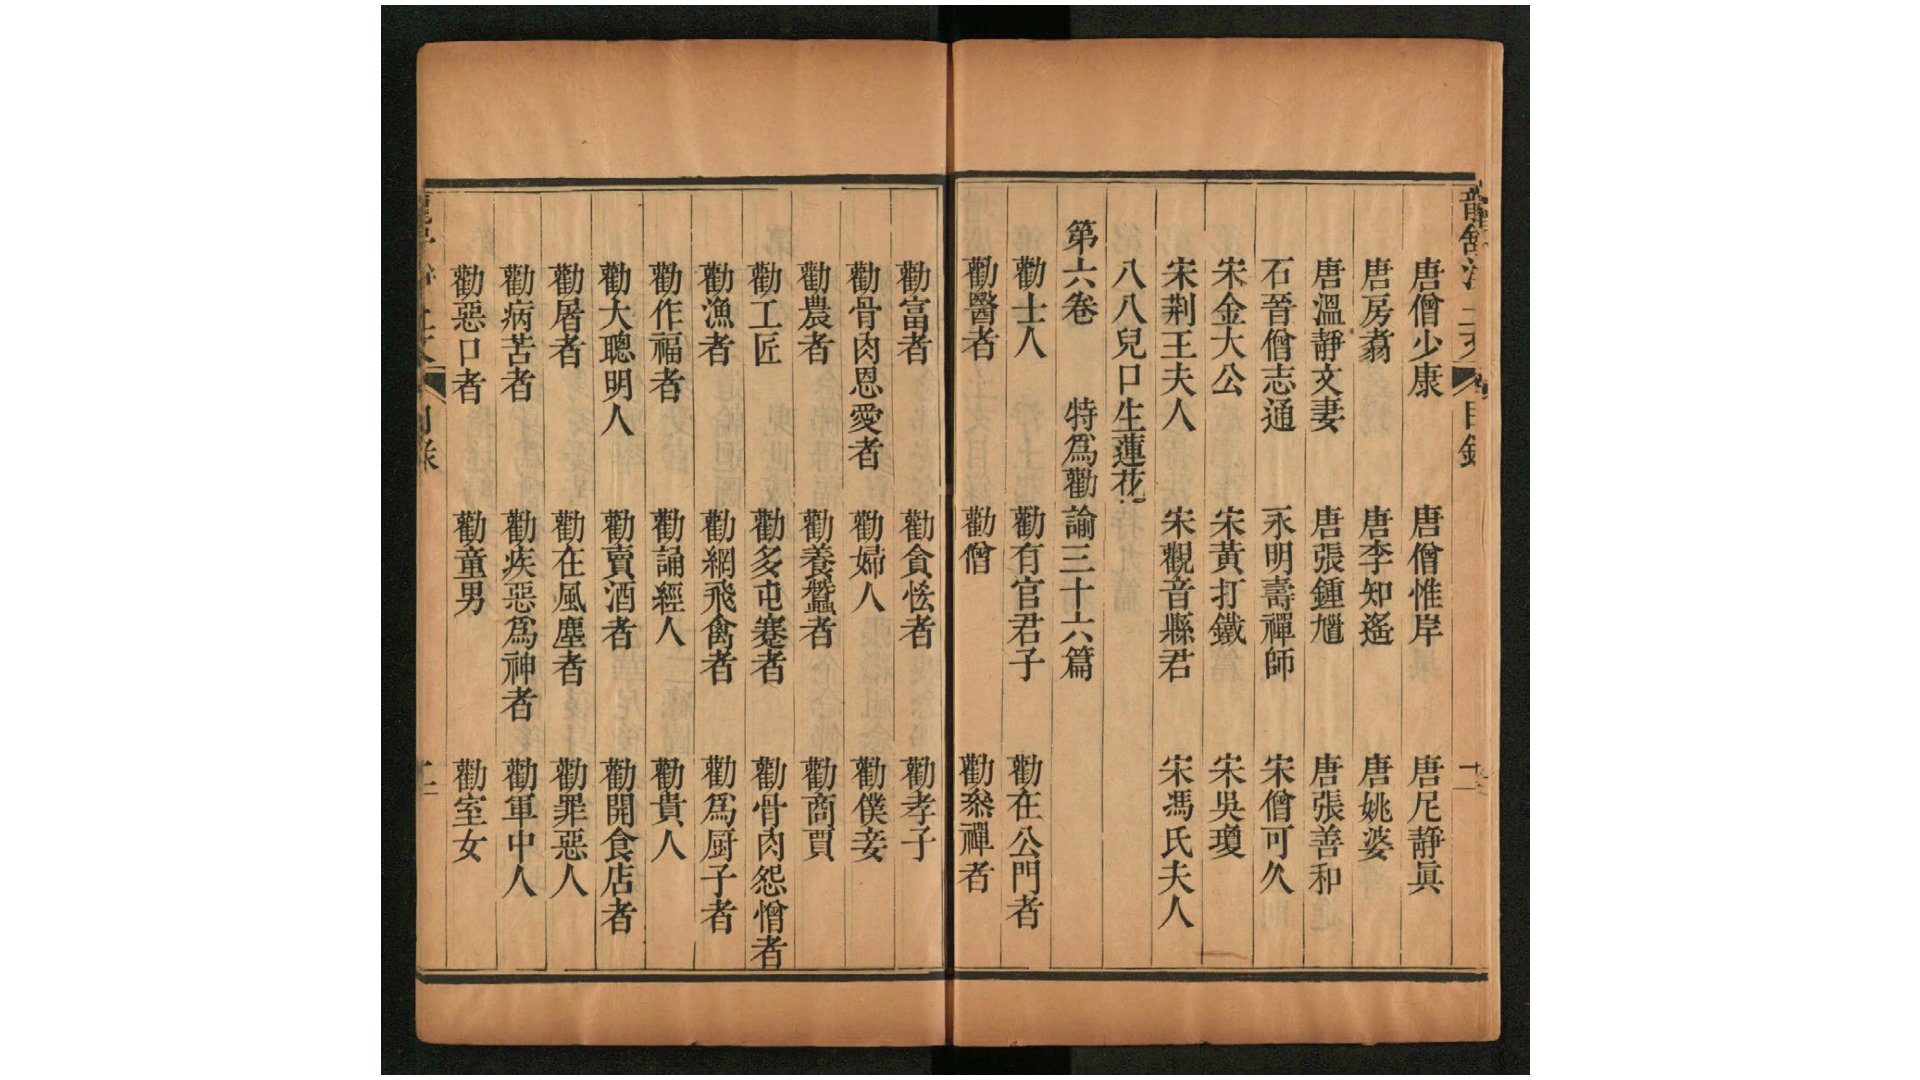 龍舒淨土文 目錄
唐僧少康 唐僧惟岸 唐尼靜眞
唐房翥 唐李知遙 唐姚婆
唐溫靜文妻 唐張鍾馗 唐張善和
石晉僧志通 永明壽禪師 宋僧可久
宋金大公 宋黃打鐵 宋吳瓊
宋荆王夫人 宋觀音縣君 宋馮氏夫人
八八兒口生蓮花
第六卷 特爲勸諭三十六篇
勸士人 勸有官君子 勸在公門者
勸醫者 勸僧 勸叅禪者
勸富者 勸貪恡者 勸孝子
勸骨肉恩愛者 勸婦人 勸僕妾
勸農者 勸養蠶者 勸商賈
勸工匠 勸多屯蹇者 勸骨肉怨憎者
勸漁者 勸網飛禽者 勸爲厨子者
勸作福者 勸誦經人 勸貴人
勸大聰明人 勸賣酒者 勸開食店者
勸屠者 勸在風塵者 勸罪惡人
勸病苦者 勸疾惡爲神者 勸軍中人
勸惡口者 勸童男 勸室女